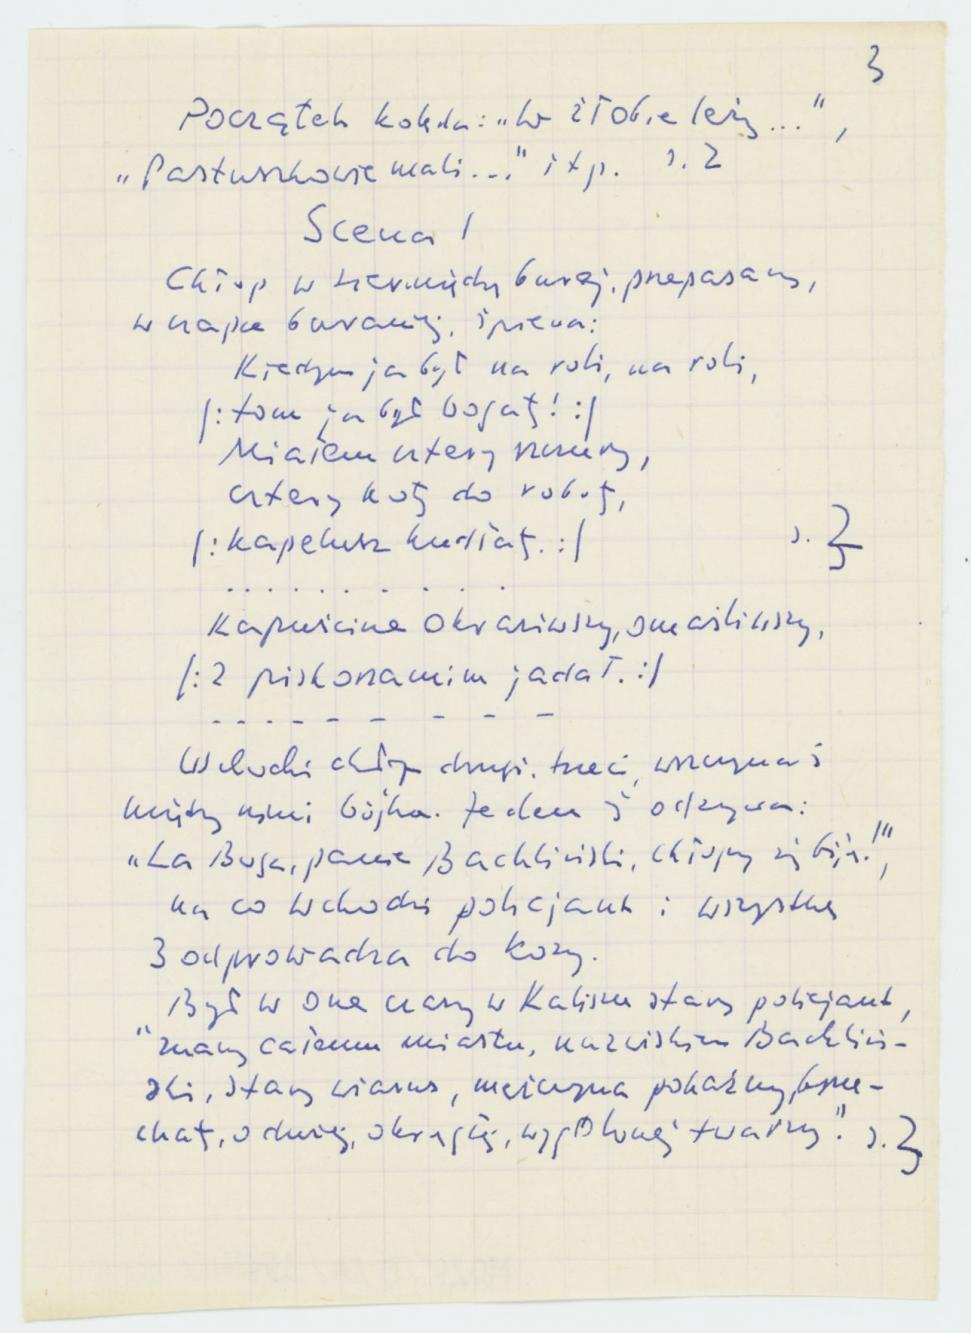 3
Początek kolęda: „W żłobie leży...",
„Pastuszkowie mali..." itp. s. 2
Scena 1
Chłop w siermiędze burej, przepasany,
w czapce baraniej, śpiewa:
Kiedym ja był na roli, na roli,
/: tom ja był bogaty! :/
Miałem cztery szczury,
cztery koty do roboty,
/: kapelusz kudłaty. :/ s. 3
. . . . . . . . .
Kapuścine okrasiwszy, omaśliwszy,
/: z piskorzamim jadał. :/
- - - - - - - - -
Wchodzi chłop drugi, trzeci, wszczyna się
między nimi bójka. Jeden się odzywa:
„La Boga, panie Bachliński, chłopy się bijo!",
na co wchodzi policjant i wszystkie
3 odprowadza do kozy.
Był w one czasy w Kaliszu stary policjant,
"znany całemu miastu, nazwiskiem Bachliń-
ski, stary wiarus, mężczyzna pokaźny, brzu-
chaty, o dużej, okrągłej, wygolonej twarzy." s. 3